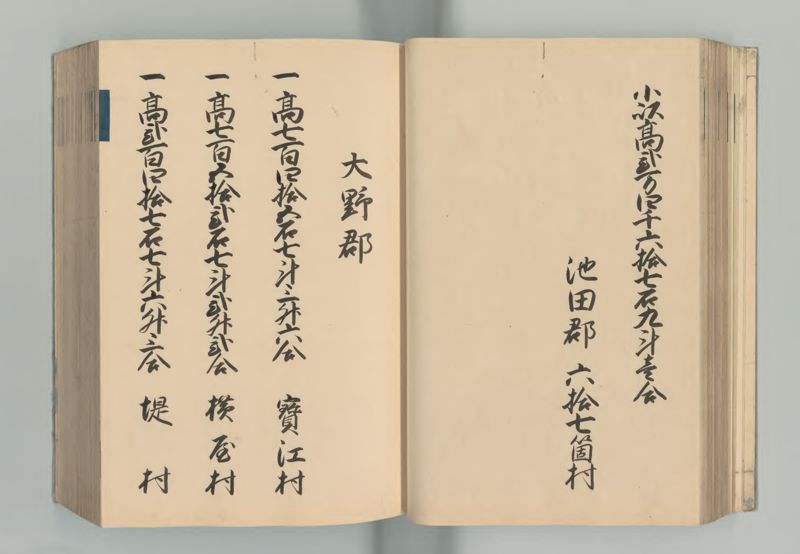 小以高弐万四千六拾七石九斗壱合
池田郡 六拾七箇村
大野郡
一 高七百四拾五石七斗三升六合 寶江村
一 高七百五拾弐石七斗弐升弐合 横屋村
一 高弐百四拾七石七斗六升三合 堤村